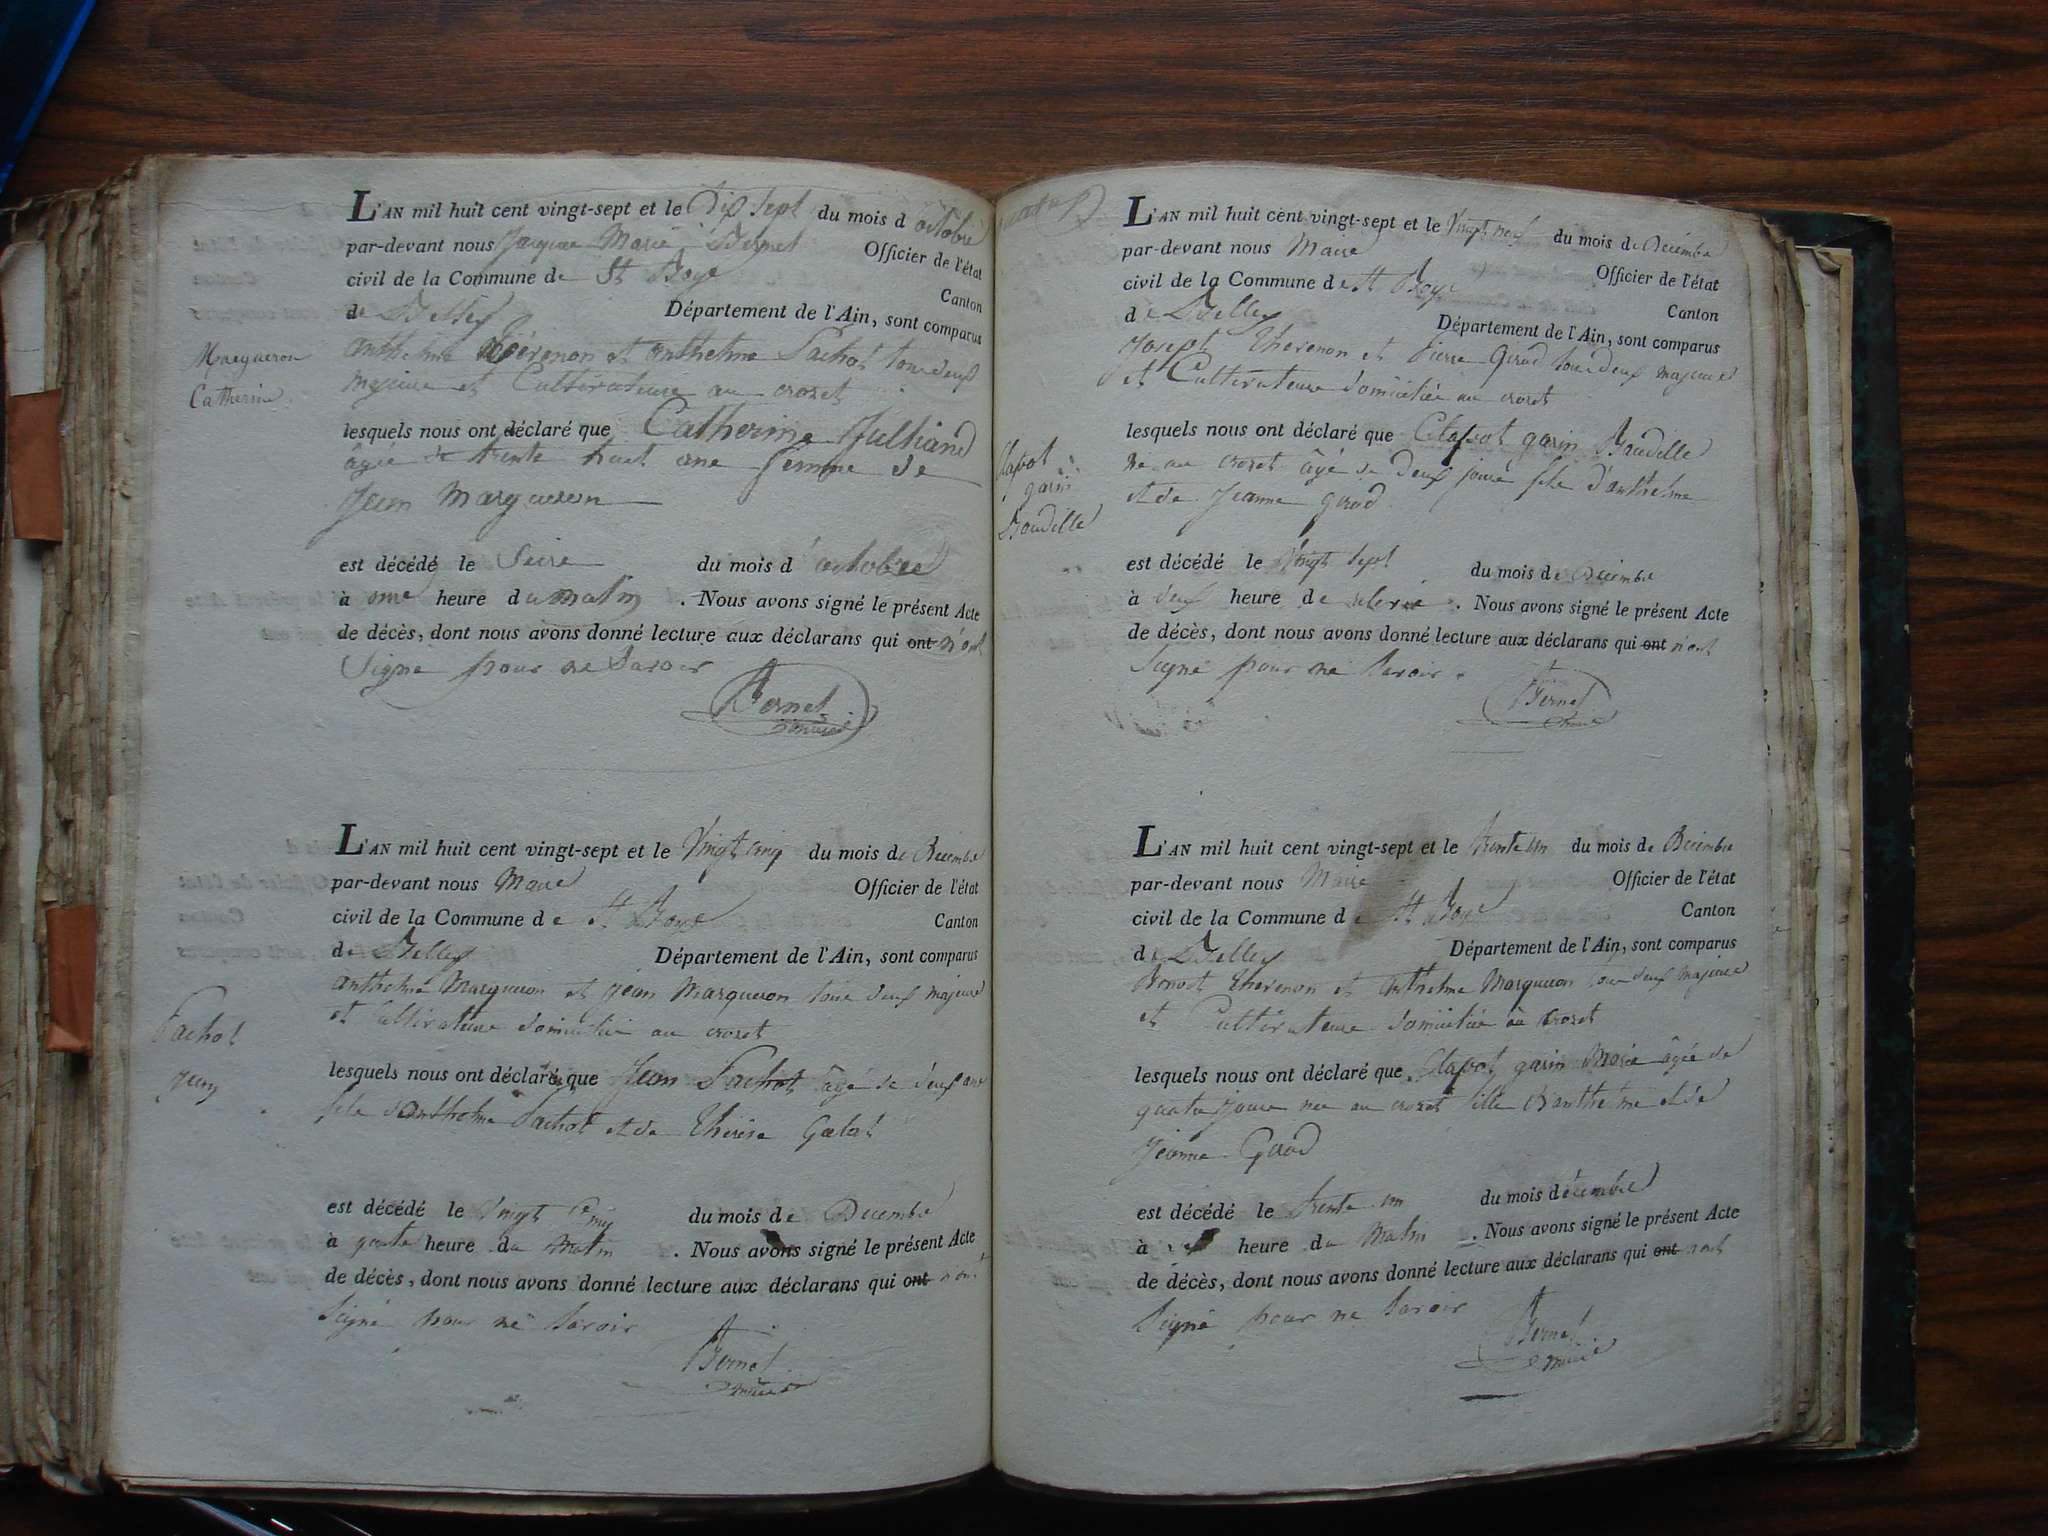 L'AN mil huit cent vingt-sept et le Dix Sept du mois d octobre
par-devant nous Jacques Marie Bernet Officier de l'état
civil de la Commune de St Boys Canton
de Belley Département de l'Ain, sont comparus
anthelme et anthelme Pachot tous deux
majeure et Cultivateure au crozet
Margueron
Catherine
lesquels nous ont déclaré que Catherine Julliand
âgée de trente huit ans femme de
Jean Margueron
est décédé le Seize du mois d'octobre
à une heure du matin. Nous avons signé le présent Acte
de décès, dont nous avons donné lecture aux déclarans qui ont n'ont
Signé pour ne Savoir
Bernet
maire
L'AN mil huit cent vingt-sept et le Vingt cinq du mois de Decembre
par-devant nous Maire Officier de l'état
civil de la Commune de St Boys Canton
de Belley Département de l'Ain, sont comparus
anthelme Margueron et jean Margueron tous deux majeure
et Cultivateure domicilié au crozet
Pachot
jean
lesquels nous ont déclaré que Jean Pachot âgé de deux ans
fils d'anthelme Pachot et de thérèse Galat
est décédé le Vingt Cinq du mois de Decembre
à quatre heure du Matin. Nous avons signé le présent Acte
de décès, dont nous avons donné lecture aux déclarans qui ont n'ont
Signé pour ne Savoir
Bernet
maire
L'AN mil huit cent vingt-sept et le Vingt neuf du mois de Decembre
par-devant nous Maire Officier de l'état
civil de la Commune de St Boys Canton
de Belley Département de l'Ain, sont comparus
Joseph thevenon et Pierre Girod tous deux majeure
et Cultivateure domiciliée au crozet
Clapot
garin
Baudille
lesquels nous ont déclaré que Clapot garin Baudille
né au crozet âgé de Deux jours fils d'anthelme
et de Jeanne girod
est décédé le Vingt Sept du mois de Decembre
à deux heure de. Nous avons signé le présent Acte
de décès, dont nous avons donné lecture aux déclarans qui ont n'ont
Signé pour ne Savoir.
Bernet
maire
L'AN mil huit cent vingt-sept et le trente un du mois de Decembre
par-devant nous Maire Officier de l'état
civil de la Commune de St Boys Canton
de Belley Département de l'Ain, sont comparus
Benoit thevenon et anthelme Margueron tous deux majeure
et Cultivateure domiciliée au Crozet
lesquels nous ont déclaré que Clapot garin Marie âgée de
quatre jours née au crozet fille d'anthelme et de
Jeanne Girod
est décédé le trente un du mois décembre
à heure du Matin. Nous avons signé le présent Acte
de décès, dont nous avons donné lecture aux déclarans qui ont n'ont
Signé pour ne Savoir
Bernet
maire